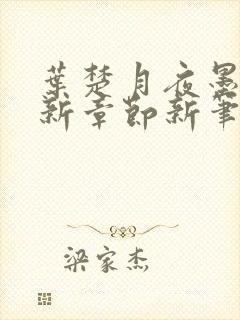 葉楚月夜墨
新章節新筆
梁家杰